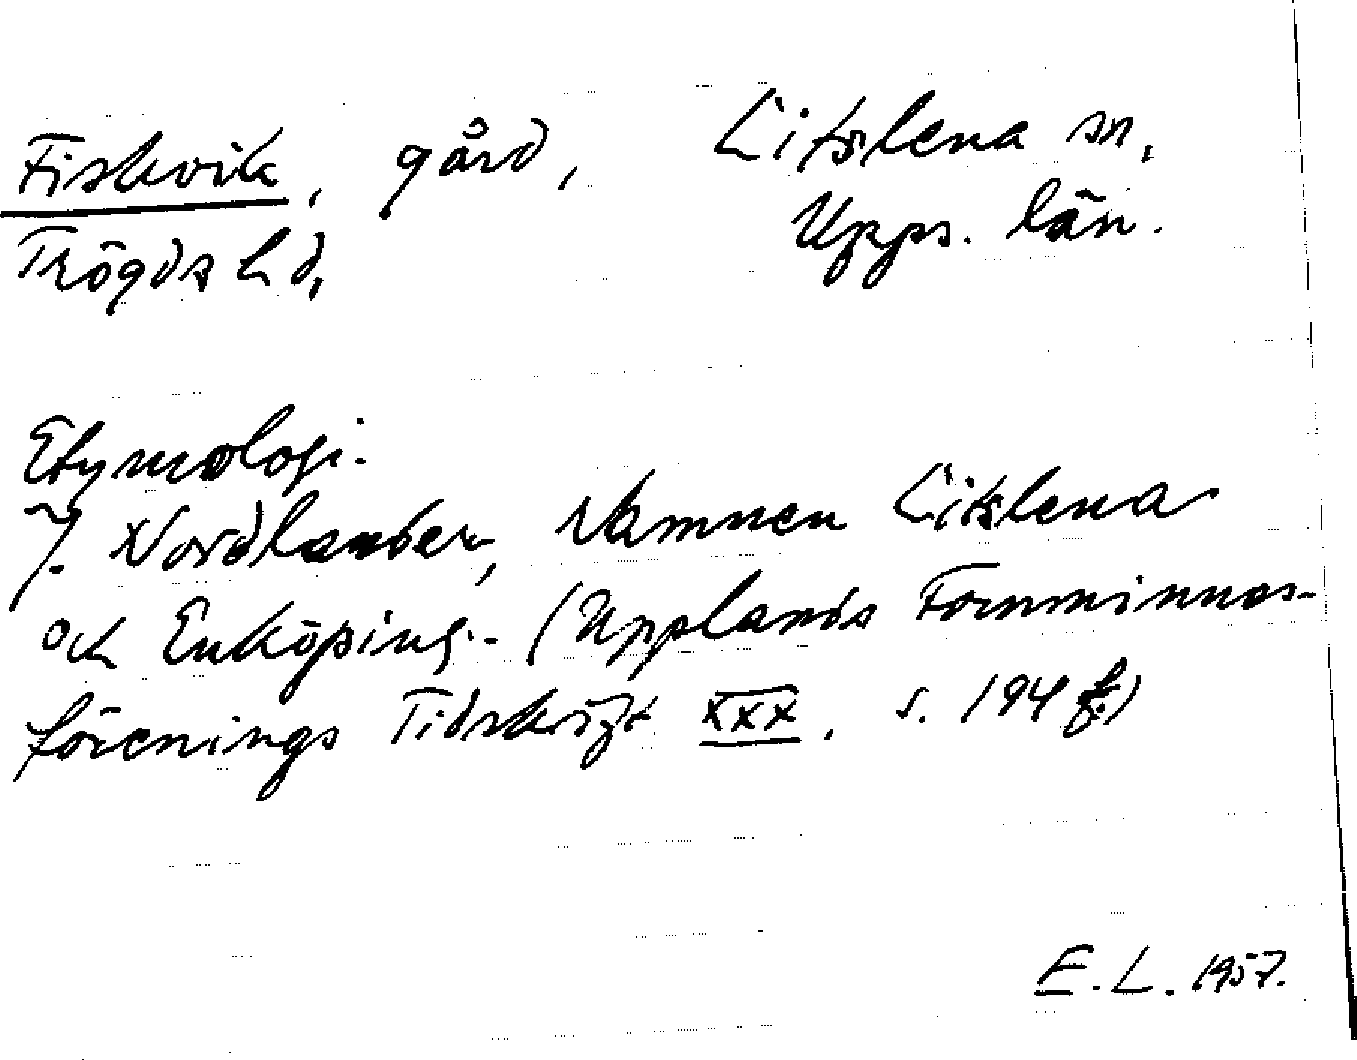 Fiskvik, gård, Litslena sn,
Trögds hd, Upps. län.
Etymologi.
J. Nordlander, Namnen Litslena
och Enköping. (Upplands Fornminnes-
förenings Tidskrift XXX, s. 194 f.)
E. L. 1957.